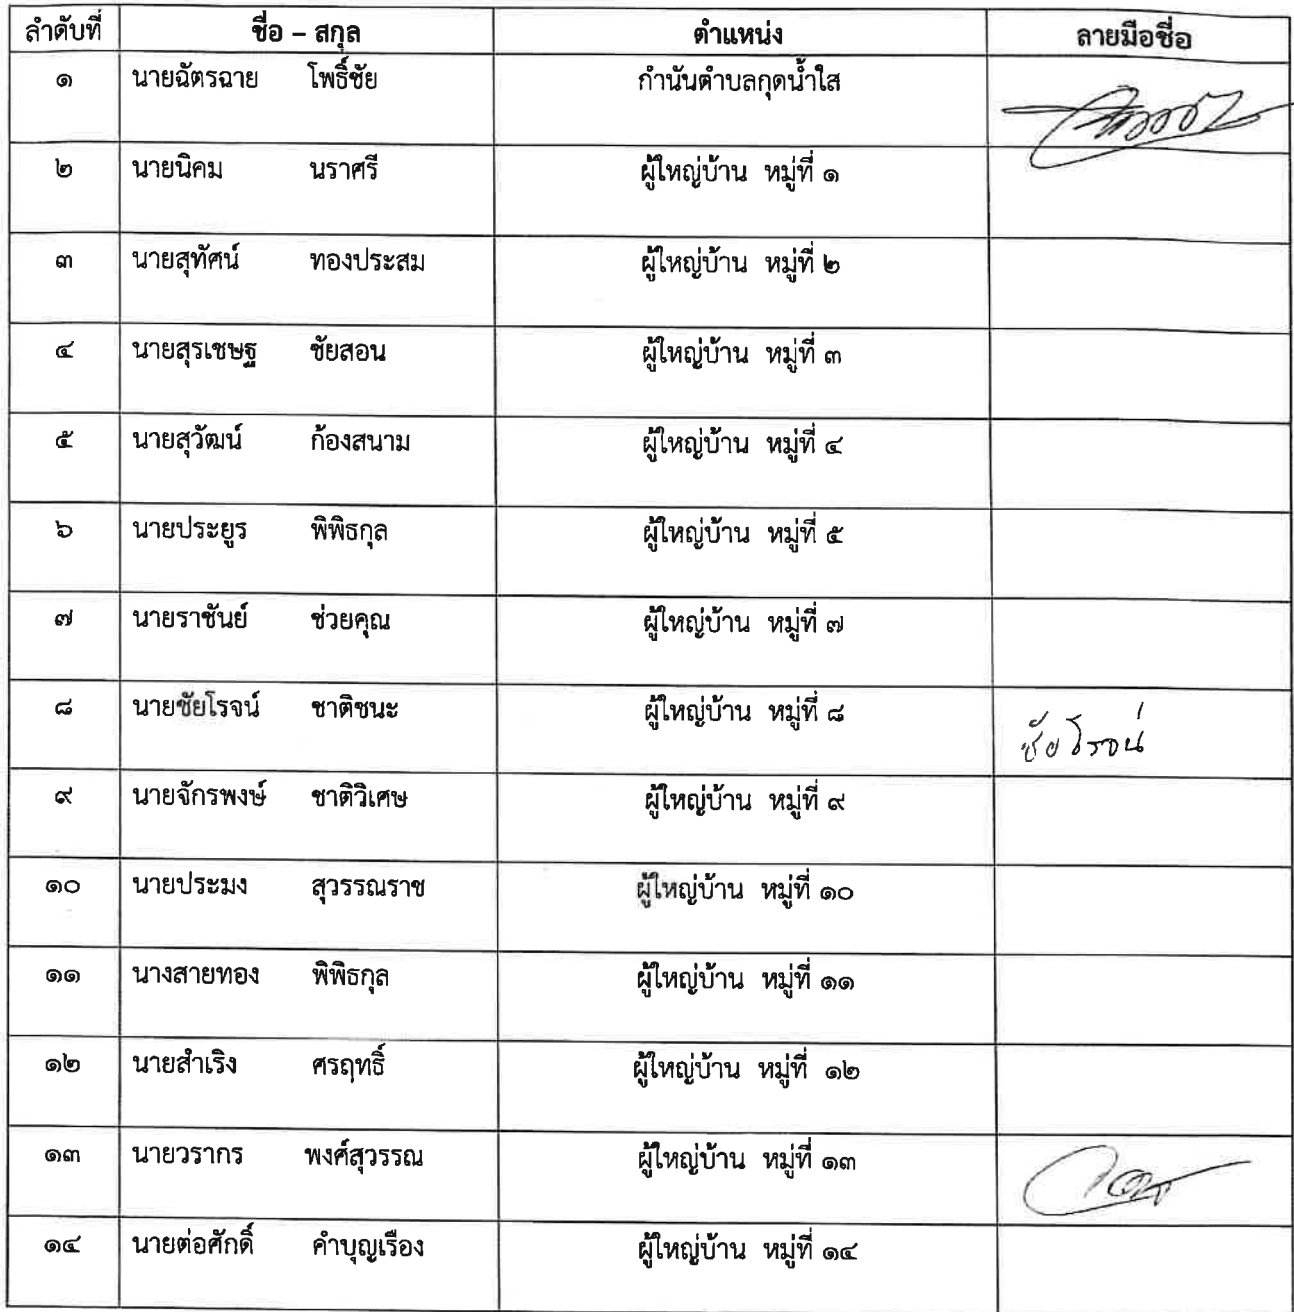 ลำดับที่ ชื่อ – สกุล ตำแหน่ง ลายมือชื่อ
๑ นายฉัตรฉาย โพธิ์ชัย กำนันตำบลกุดน้ำใส
๒ นายนิคม นราศรี ผู้ใหญ่บ้าน หมู่ที่ ๑
๓ นายสุทัศน์ ทองประสม ผู้ใหญ่บ้าน หมู่ที่ ๒
๔ นายสุรเชษฐ ชัยสอน ผู้ใหญ่บ้าน หมู่ที่ ๓
๕ นายสุวัฒน์ ก้องสนาม ผู้ใหญ่บ้าน หมู่ที่ ๔
๖ นายประยูร พิพิธกุล ผู้ใหญ่บ้าน หมู่ที่ ๕
๗ นายราชันย์ ช่วยคุณ ผู้ใหญ่บ้าน หมู่ที่ ๗
๘ นายชัยโรจน์ ชาติชนะ ผู้ใหญ่บ้าน หมู่ที่ ๘ ชัยโรจน์
๙ นายจักรพงษ์ ชาติวิเศษ ผู้ใหญ่บ้าน หมู่ที่ ๙
๑๐ นายประมง สุวรรณราช ผู้ใหญ่บ้าน หมู่ที่ ๑๐
๑๑ นางสายทอง พิพิธกุล ผู้ใหญ่บ้าน หมู่ที่ ๑๑
๑๒ นายสำเริง ศรฤทธิ์ ผู้ใหญ่บ้าน หมู่ที่ ๑๒
๑๓ นายวรากร พงศ์สุวรรณ ผู้ใหญ่บ้าน หมู่ที่ ๑๓
๑๔ นายต่อศักดิ์ คำบุญเรือง ผู้ใหญ่บ้าน หมู่ที่ ๑๔